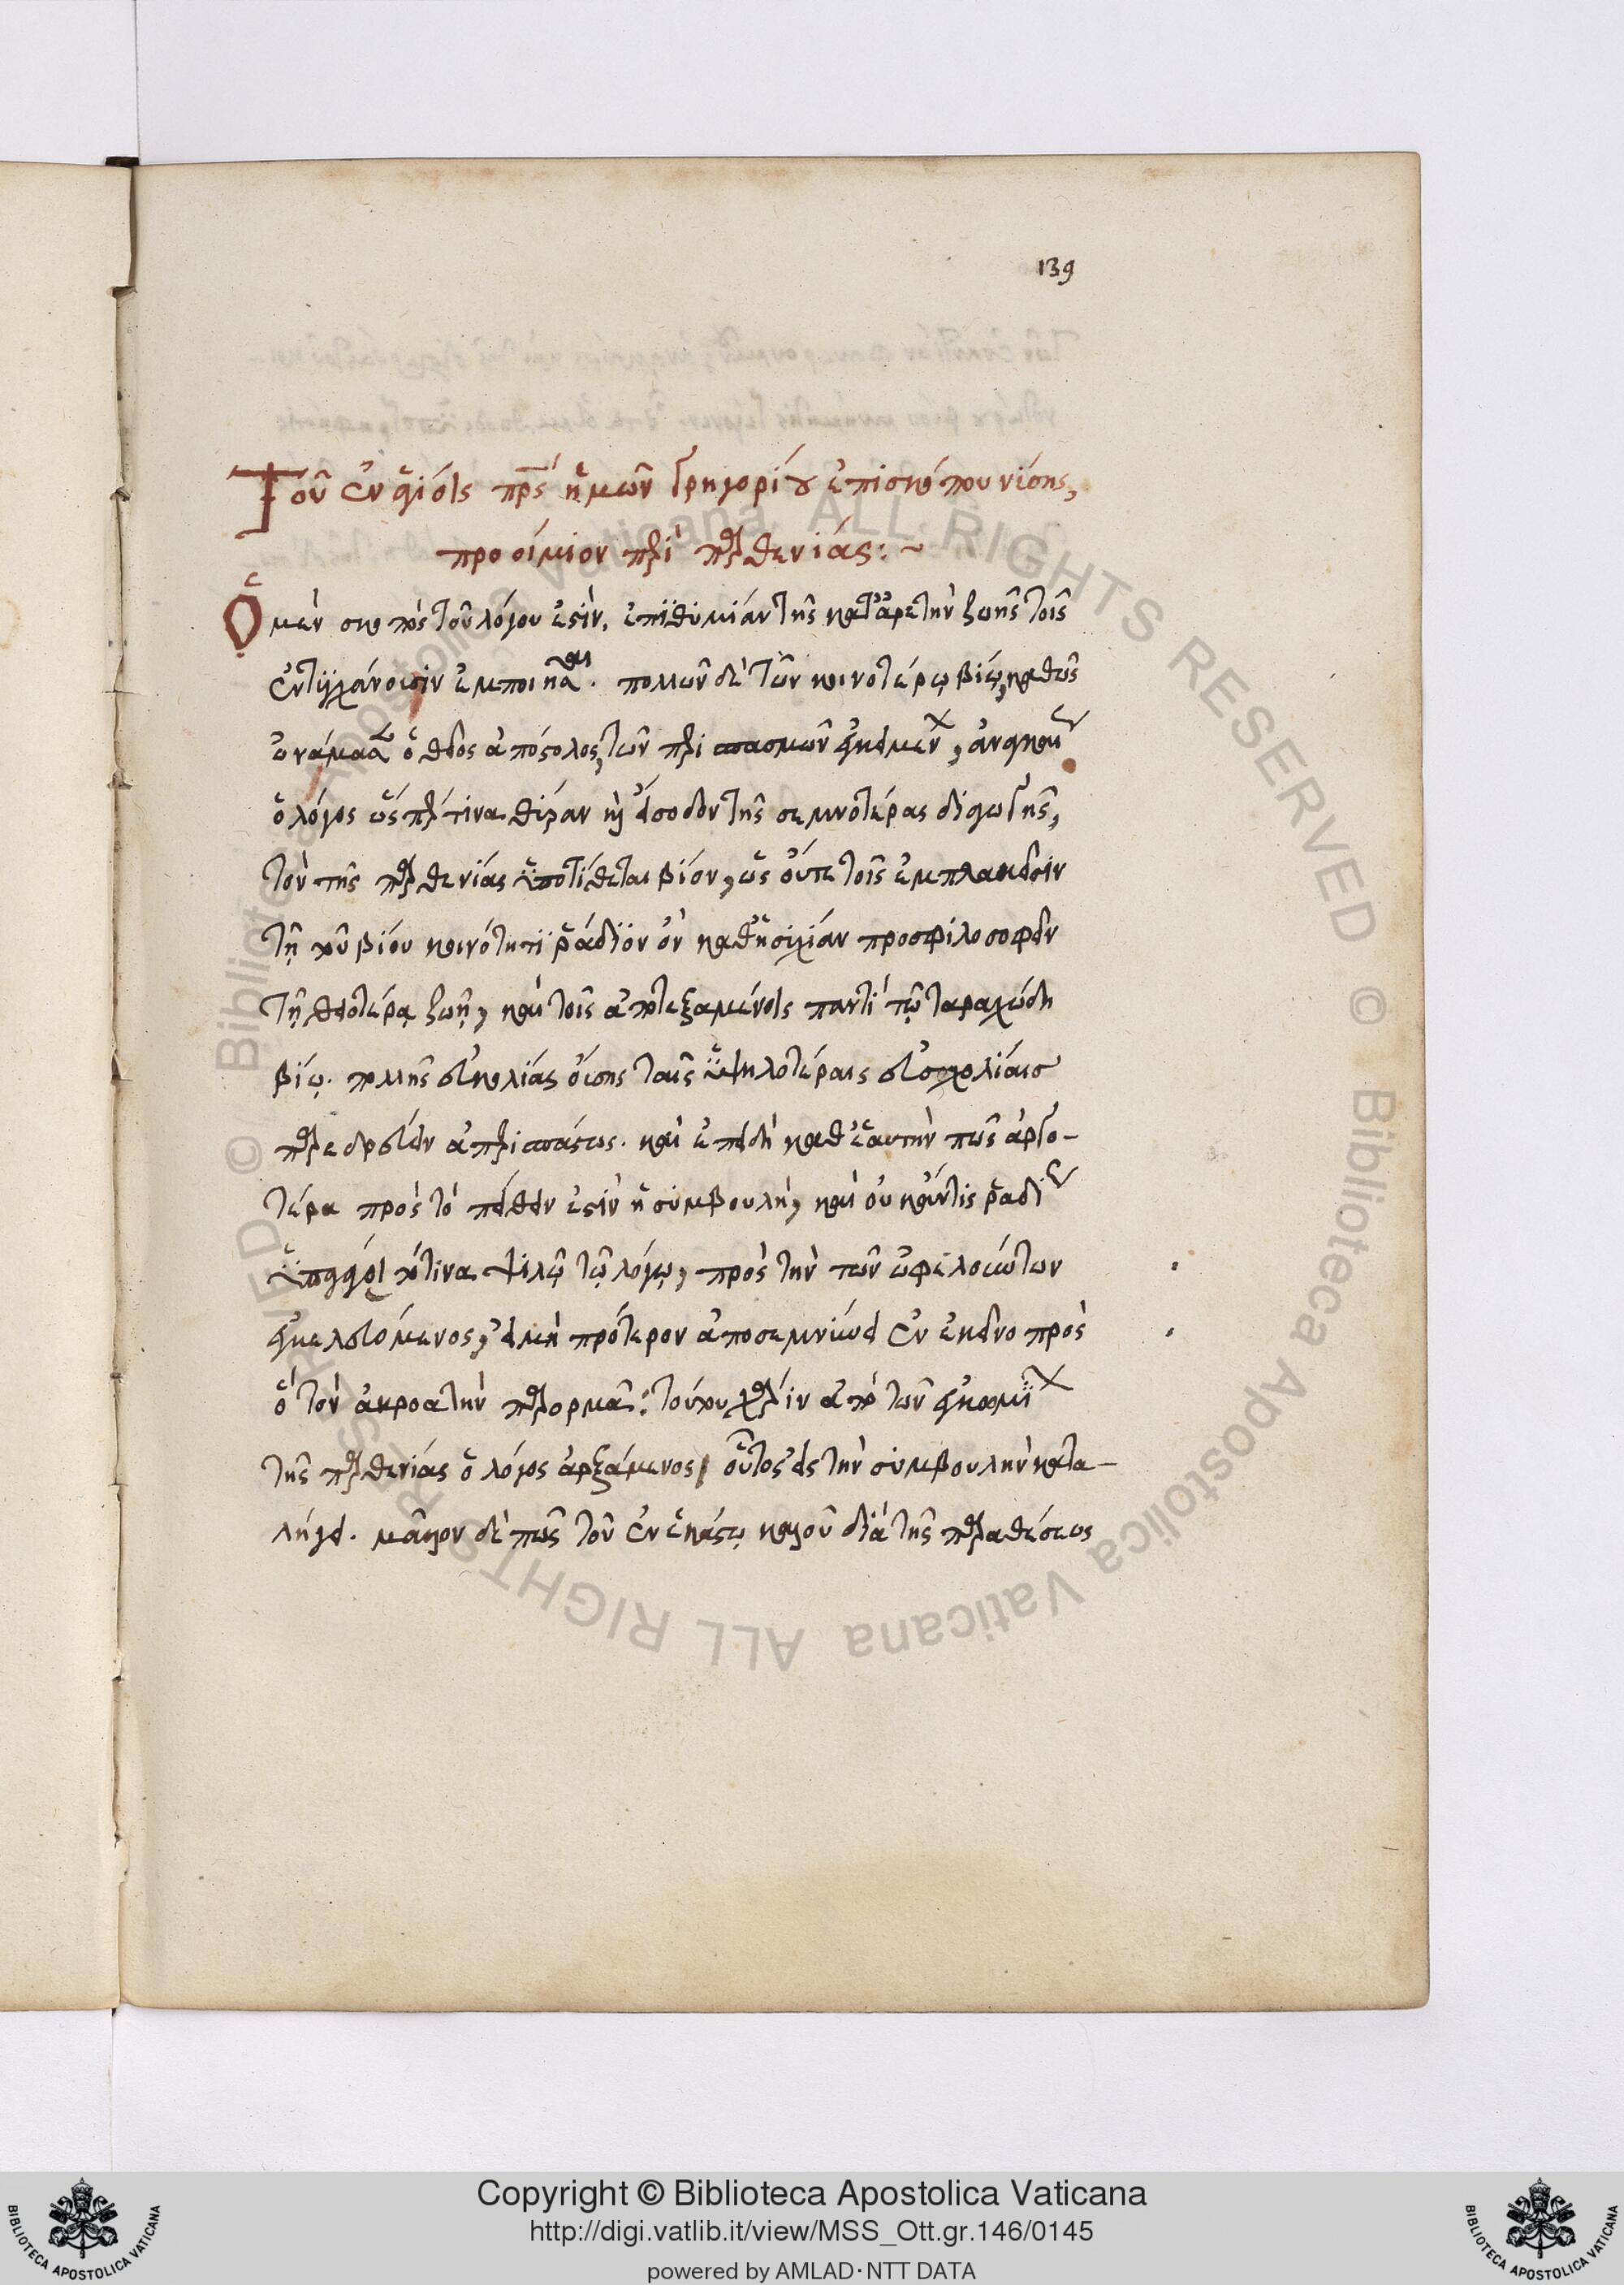 139
Τοῦ ἐν ἁγίοις πρς ἡμῶν Γρηγορίου ἐπισκόπου νύσης,
προοίμιον περὶ παρθενίας:~
Ὁ μὲν σκοπὸς τοῦ λόγου ἐστὶν, ἐπιθυμίαν τῆς κατ' ἀρετὴν ζωῆς τοῖς
ἐντυγχάνουσιν ἐμποιῆσαι. πολλῶν δὲ τῶν κοινοτέρῳ βίῳ, καθὼς
ὠνόμασεν ὁ θεῖος ἀπόστολος, τῶν περισπασμῶν ἐγκειμένων, ἀναγκαίως
ὁ λόγος ὥσπερ τινα θύραν καὶ εἴσοδον τῆς σεμνοτέρας διαγωγῆς,
τὸν τῆς παρθενίας ὑποτίθεται βίον, ὡς οὔτε τοῖς ἐμπλακεῖσιν
τῇ τοῦ βίου κοινότητι ῥάδιον ὂν καθ' ἡσυχίαν προσφιλοσοφεῖν
τῇ θειοτέρᾳ ζωῇ, καὶ τοῖς ἀποταξαμένοις παντὶ τῷ ταραχώδει
βίῳ. πολλῆς εὐκολίας οὔσης ταῖς ὑψηλοτέραις εὐσχολίαις
παρεδρεύειν ἀπερισπάστως. καὶ ἐπειδὴ καθ' ἑαυτὴν πως ἀργο-
τέρα πρὸς τὸ πείθειν ἐστὶν ἡ συμβουλὴ, καὶ οὐκ ἄν τις ῥᾳδίως
ὑπαγάγοι τινα ψιλῷ τῷ λόγῳ, πρὸς τὴν τῶν ὠφελούντων
ἐγκελευόμενος, εἰ μὴ πρότερον ἀποσεμνύνει ἐν ἐκεῖνο πρὸς
ὃ τὸν ἀκροατὴν παρορμᾷ: τούτου χάριν ἀπὸ τῶν ἐγκωμίων
τῆς παρθενίας ὁ λόγος ἀρξάμενος, οὕτως εἰς τὴν συμβουλὴν κατα-
λήγει. μᾶλλον δέ πως τοῦ ἐν ἑκάστῳ καλοῦ διὰ τῆς παραθέσεως
Copyright © Biblioteca Apostolica Vaticana
http://digi.vatlib.it/view/MSS_Ott.gr.146/0145
powered by AMLAD·NTT DATA
BIBLIOTECA APOSTOLICA VATICANA
BIBLIOTECA APOSTOLICA VATICANA
© Biblioteca Apostolica Vaticana ALL RIGHTS RESERVED © Biblioteca Apostolica Vaticana ALL RIGHTS RESERVED